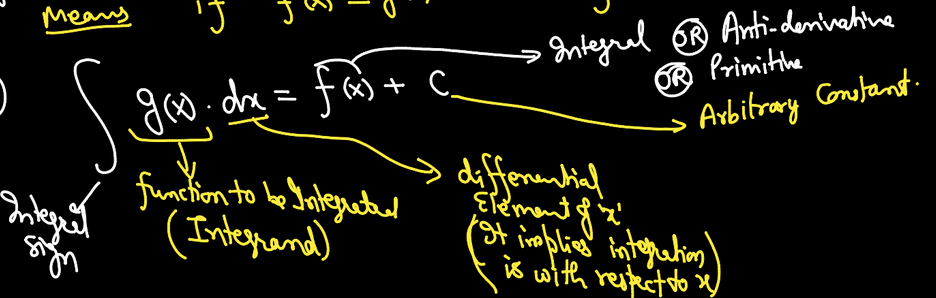 Means if f(x) = g
∫ g(x) · dx = f(x) + C
Integral OR Anti-derivative
OR Primitive
Arbitrary Constant.
Integral
Sign
function to be Integrated
(Integrand)
differential
Element of 'x'
(It implies integration
is with respect to x)